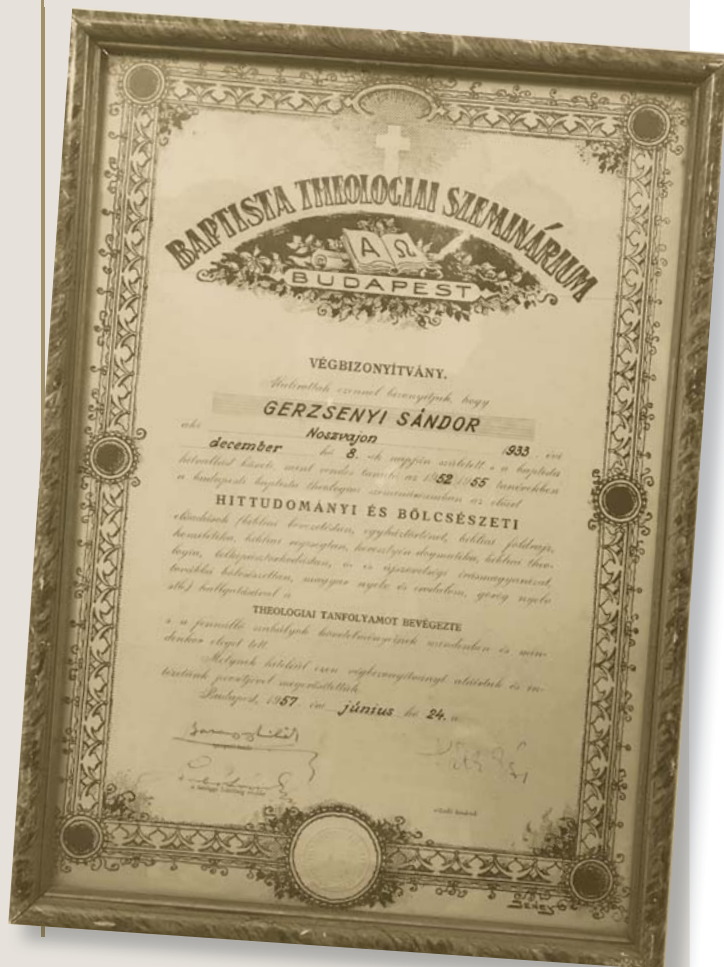 BAPTISTA THEOLOGIAI SZEMINÁRIUM
Α Ω
BUDAPEST
VÉGBIZONYÍTVÁNY.
Alulírottak ezennel bizonyítjuk, hogy
GERZSENYI SÁNDOR
aki Noszvajon 1933. évi
december hó 8. -ik napján született s a baptista
hitvallást követi, mint rendes tanuló az 1952/1955 tanévekben
a budapesti baptista theologiai szemináriumban az előírt
HITTUDOMÁNYI ÉS BÖLCSÉSZETI
előadások (bibliai bevezetéstan, egyháztörténet, bibliai földrajz,
homiletika, bibliai régiségtan, keresztyén dogmatika, bibliai theo-
logia, lelkipásztorkodástan, ó- és újszövetségi írásmagyarázat,
továbbá bölcsészettan, magyar nyelv és irodalom, görög nyelv
stb.) hallgatásával a
THEOLOGIAI TANFOLYAMOT BEVÉGEZTE
s a fennálló szabályok követelményeinek mindenben és min-
denkor eleget tett.
Melynek hiteléül ezen végbizonyítványt aláírtuk és in-
tézetünk pecsétjével megerősítettük.
Budapest, 1957 évi június hó 24. n.